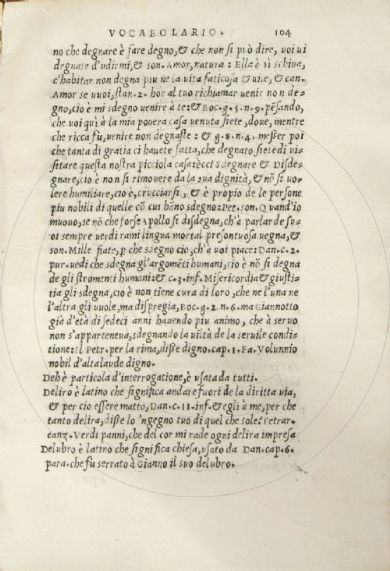 VOCABOLARIO. 104
no che degnare è fare degno, & che non si può dire, voi vi
degnate d'udirmi, & son. Amor, natura: Ella è sì schiva,
c'habitar non degna piu ne la vita faticosa & vile, & can.
Amor se vuoi, stan. 2. hor al tuo richiamar venir non de
gno, cio è mi sdegno venire à te: & Boc. g. 5. n. 9. pēsando,
che voi quì à la mia povera casa venuta siete, dove, mentre
che ricca fù, venire non degnaste: & g. 8. n. 4. messer poi
che tanta di gratia ci havete fatta, che degnato siete di vi-
sitare questa nostra picciola casa: ècci Sdegnare & Disde-
gnare, cio è non si rimovere da la sua dignità, & nō si vo-
lere humiliare, cio è, crucciarsi, & è propio de le persone
piu nobili di quelle cō cui hāno sdegno: Per. son. Quand'io
muovo, se nō che forse Apollo si disdegna, ch'à parlar de suo
i sempre verdi rami lingua mortal presontuosa vegna, &
son. Mille fiate, p che sdegno cio, ch'à voi piace: Dan. c. 2.
pur. vedi che sdegna gl'argomēti humani, cio è nō si degna
de gli stromenti humani: & c. 3. inf. Misericordia & giusti-
tia gli sdegna, cio è non tiene cura di loro, che ne l'una ne
l'altra gli vuole, ma dispregia, Boc. g. 2. n. 6. ma Giannotto
già d'età di sedeci anni havendo piu animo, che à servo
non s'apparteneva, sdegnando la viltà de la servile condi-
tione: Il Petr. per la rima, disse digno. cap. 1. Fa. Volunnio
nobil d'alta laude digno.
Deh è particola d'interrogatione, è usata da tutti.
Deliro è latino che significa andare fuori de la diritta via,
& per cio essere matto, Dan. c. 11. inf. & egli à me, per che
tanto delira, disse lo 'ngegno tuo di quel che sole: Petrar.
canz. Verdi panni, che del cor mi rade ogni delira impresa
Delubro è latino che significa chiesa, usato da Dan. cap. 6.
para. che fù serrato à Gianno il suo delubro.